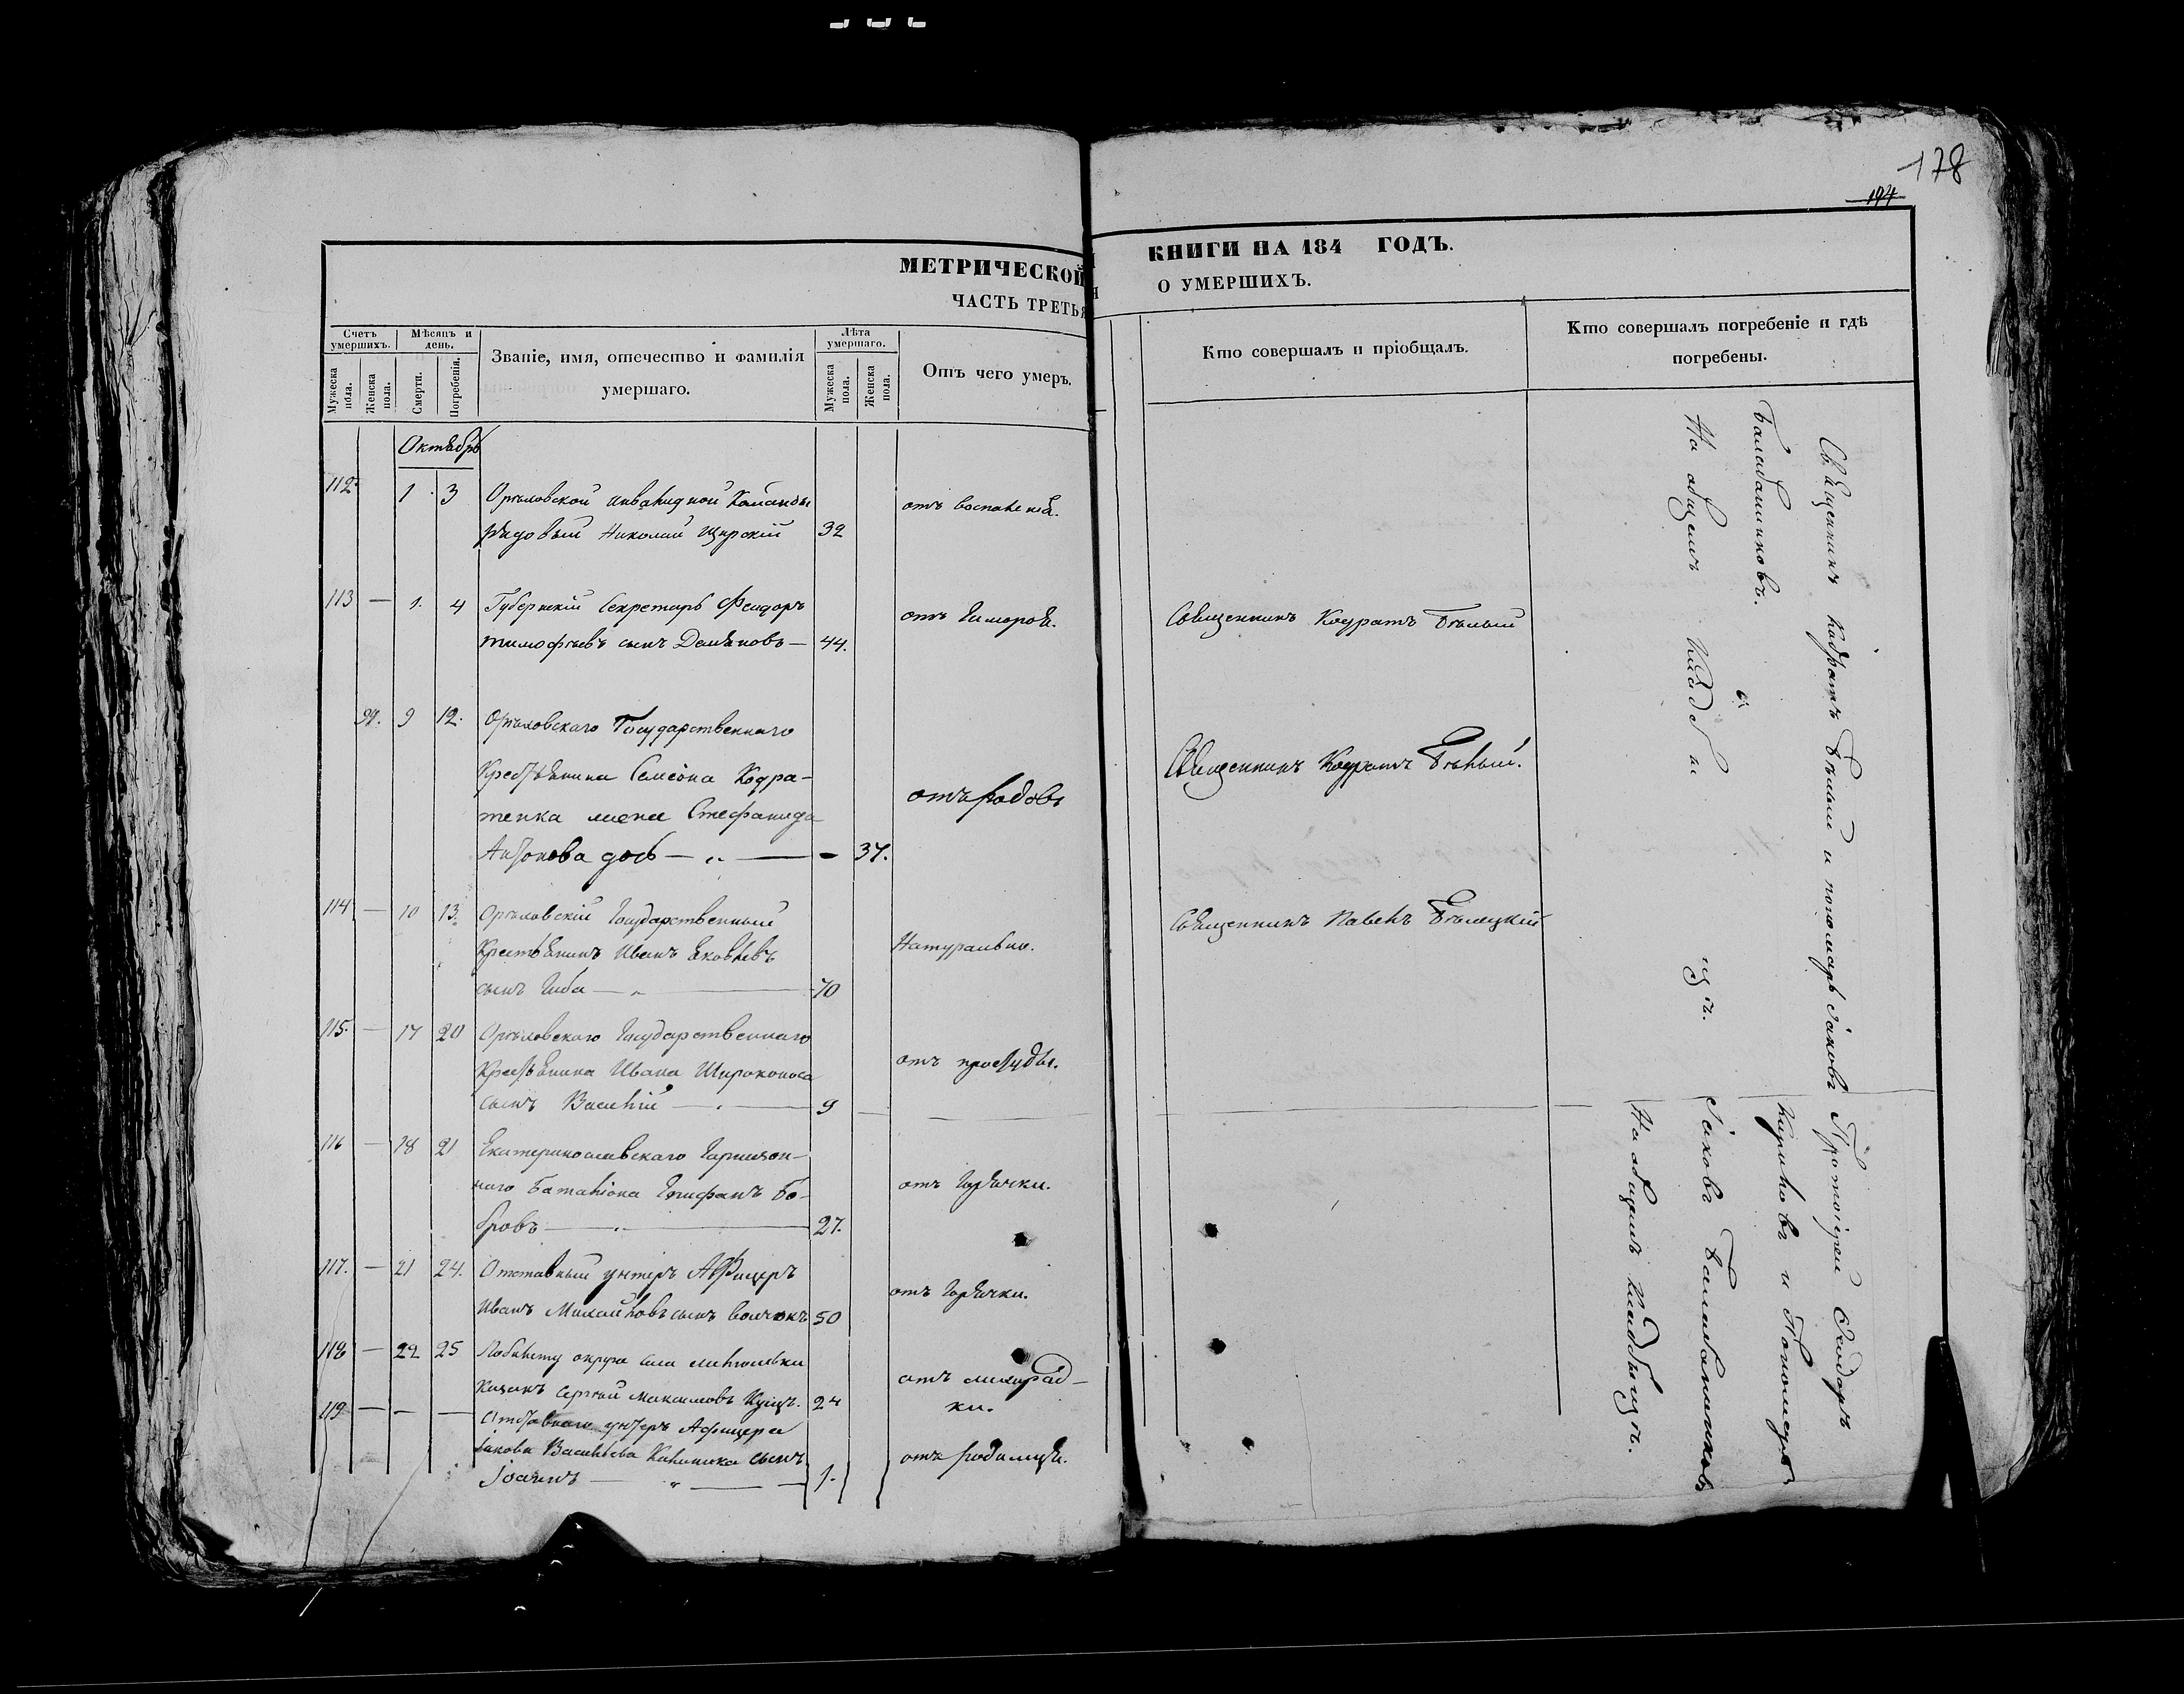 178
194
МЕТРИЧЕСКОЙ КНИГИ НА 184 ГОДЪ.
ЧАСТЬ ТРЕТЬЯ О УМЕРШИХЪ.
Счетъ умершихъ.
Мужеска пола.
Женска пола.
Мѣсяцъ и день.
Смерти.
Погребенія.
Званіе, имя, отечество и фамилія
умершаго.
Лѣта умершаго.
Мужеска пола.
Женска пола.
Отъ чего умеръ.
Кто совершалъ и пріобщалъ.
Кто совершалъ погребеніе и гдѣ
погребены.
Октябрь
112 1 3 Орѣховской инвалидной Команды отъ воспаленія.
рядовый Николай Щирскій 32
113 — 1. 4 Губернскій Секретарь Феодоръ отъ Священникъ Кодратъ Бѣлый
тимофѣевъ сынъ Демяновъ — 44.
9 12. Орѣховскаго Государственнаго
Крестьянина Семіона Кодра- Священникъ Кодратъ Бѣлый.
тенка жена Стефанида отъ родовъ
Антонова дочь — „ — 37.
114 — 10 13. Орѣховскій Государственный Священникъ Павелъ Бѣлецкій
Крестьянинъ Иванъ Яковлевъ Натурально.
сынъ — „ — 70
115. — 17 20 Орѣховскаго Государственнаго
Крестьянина Ивана Широконоса отъ простуды.
сынъ Василій — 9
116 — 18 21 Екатеринославскаго Гарнизон-
наго Баталіона Епифанъ Бо- отъ Горячки.
бровъ — 27.
117. — 21 24. Отставный унтеръ Афицеръ отъ Горячки.
Иванъ Михайловъ сынъ 50
118 — 22 25 округи села отъ лихорад-
Казакъ Сергѣй Максимовъ Куцъ. 24 ки.
119 — — — Отставнаго унтеръ Афицера
Іакова Васильева Калиника сынъ отъ родимца.
Іоаннъ — „ — 1.
Священникъ Кодратъ Бѣлый и пономарь Іаковъ
Балабанниковъ.
На общемъ кладбищѣ.
Протоіерей Феодоръ
Кириловъ и Пономарь
Іаковъ Балабанниковъ
На общемъ Кладбищѣ.